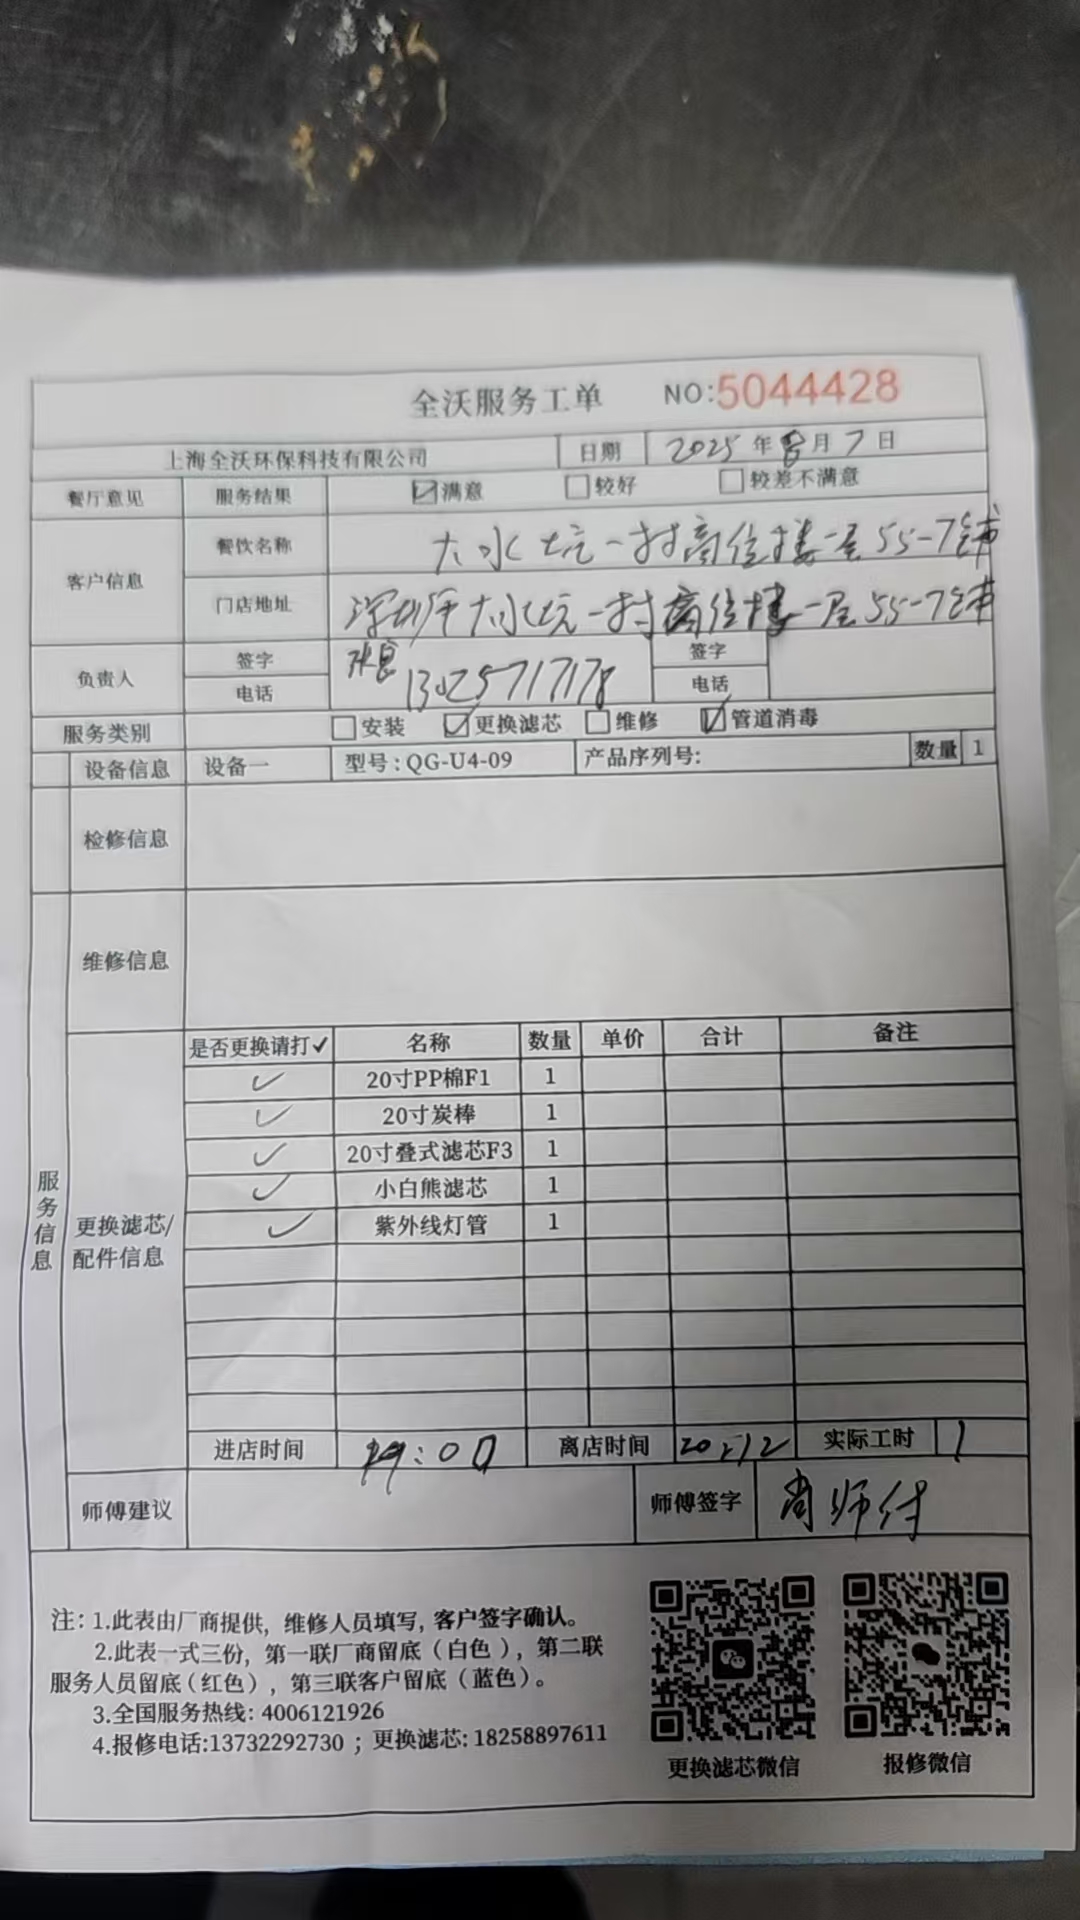 全沃服务工单 NO:5044428
上海全沃环保科技有限公司 日期 2025年8月7日
餐厅意见 服务结果 ☑满意 □较好 □较差不满意
客户信息 餐饮名称 大水坑一村高位楼一层55-7铺
门店地址 深圳市大水坑一村高位楼一层55-7铺
负责人 签字 签字
电话 13025717178 电话
服务类别 □安装 ☑更换滤芯 □维修 ☑管道消毒
设备信息 设备一 型号:QG-U4-09 产品序列号: 数量 1
检修信息
维修信息
服务信息
更换滤芯/配件信息
是否更换请打✓ 名称 数量 单价 合计 备注
✓ 20寸PP棉F1 1
✓ 20寸炭棒 1
✓ 20寸叠式滤芯F3 1
✓ 小白熊滤芯 1
✓ 紫外线灯管 1
进店时间 19:00 离店时间 20:12 实际工时 1
师傅建议 师傅签字 肖师付
注: 1.此表由厂商提供, 维修人员填写, 客户签字确认。
2.此表一式三份, 第一联厂商留底（白色）, 第二联
服务人员留底（红色）, 第三联客户留底（蓝色）。
3.全国服务热线: 4006121926
4.报修电话:13732292730 ; 更换滤芯: 18258897611
更换滤芯微信 报修微信